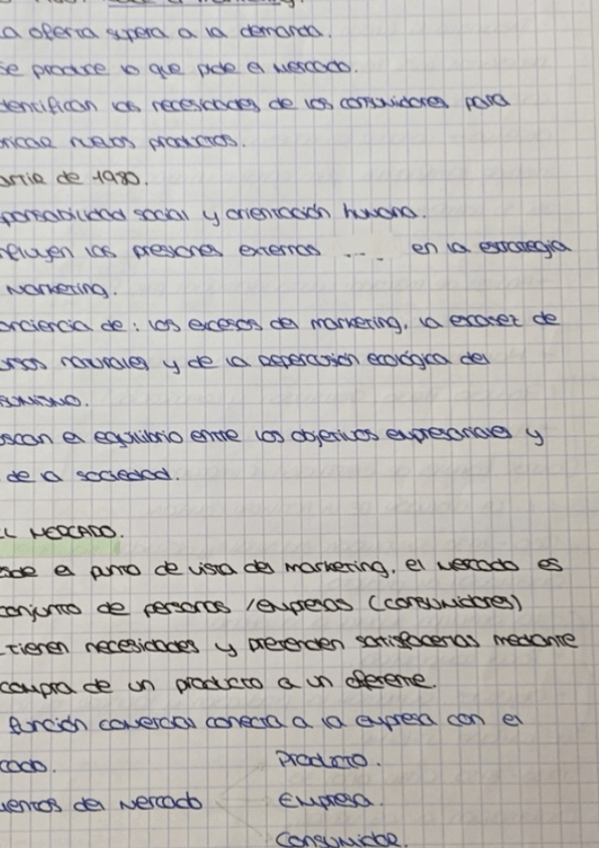 a oferta supera a la demanda.
se produce lo que pide el mercado.
dentifican las necesidades de los consumidores para
ricar nuevos productos.
artir de 1980.
ponsabilidad social y orientación humana.
nfluyen las presiones externas .... en la estrategia
Marketing.
onciencia de: los excesos del marketing, la escasez de
ursos naturales y de la repercusión ecológica del
sumismo.
uscan el equilibrio entre los objetivos empresariales y
de la sociedad.
EL MERCADO.
sde el punto de vista del marketing, el mercado es
conjunto de personas / empresas (consumidores)
tienen necesidades y pretenden satisfacerlas mediante
compra de un producto a un oferente.
función comercial conecta a la empresa con el
cado.
Producto.
mentos del Mercado Empresa.
Consumidor.